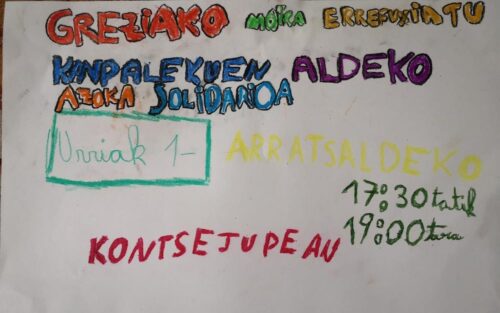 GREZIAKO MOIKA ERREFUXIATU
KANPALEKUEN ALDEKO
AZOKA SOLIDARIOA
Urriak 1- ARRATSALDEKO
17:30tatik
19:00tara
KONTSEJUPEAN